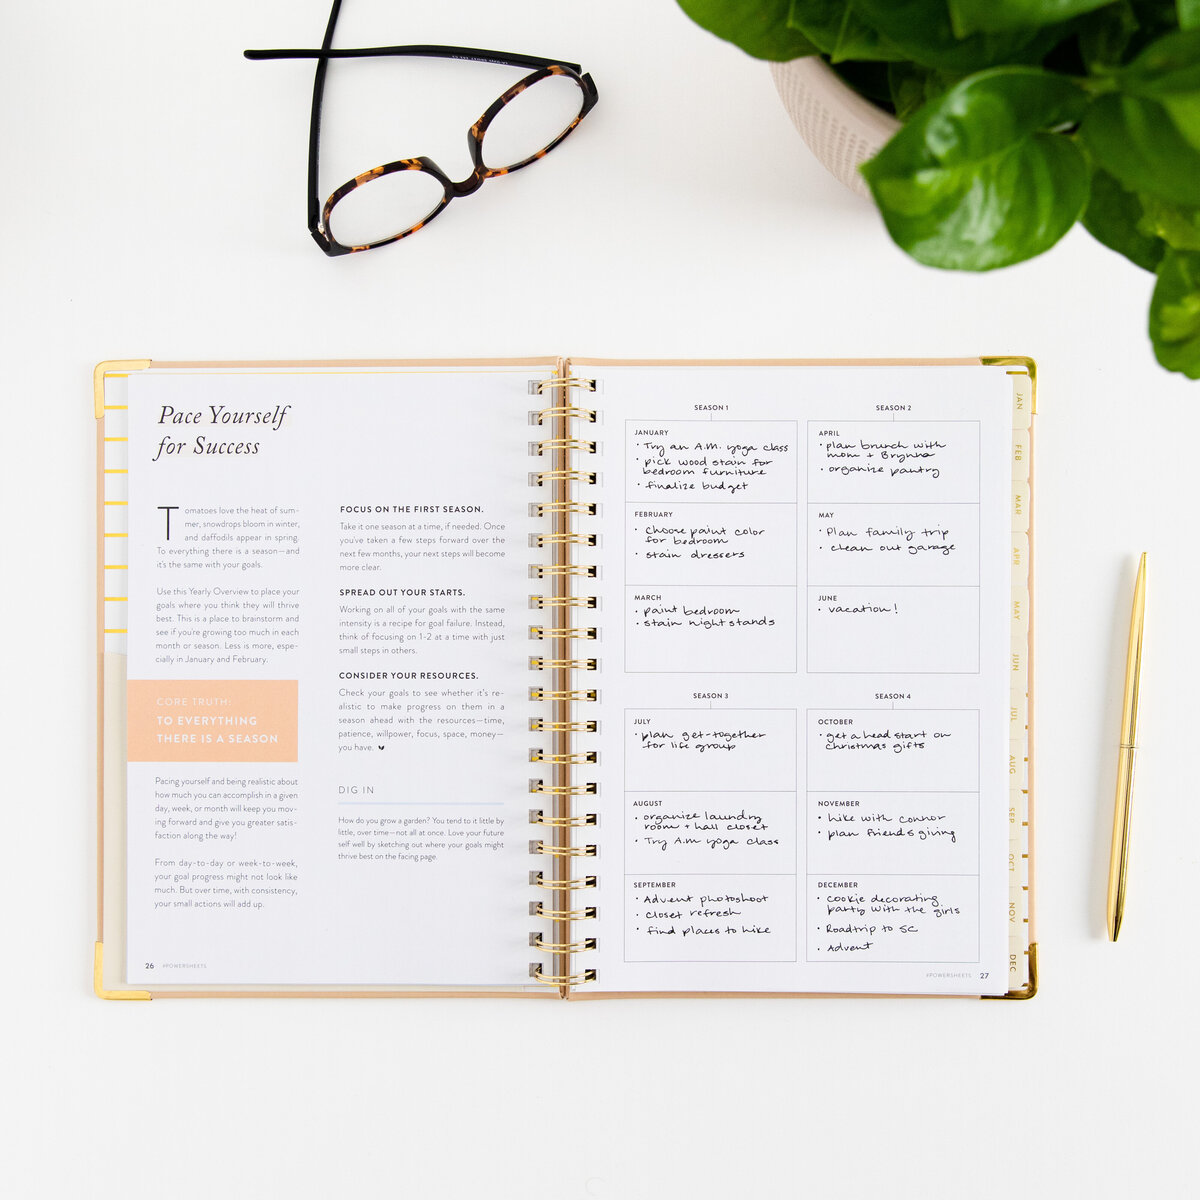 Pace Yourself
for Success
Tomatoes love the heat of sum-
mer, snowdrops bloom in winter,
and daffodils appear in spring.
To everything there is a season—and
it's the same with your goals.
Use this Yearly Overview to place your
goals where you think they will thrive
best. This is a place to brainstorm and
see if you're growing too much in each
month or season. Less is more, espe-
cially in January and February.
CORE TRUTH:
TO EVERYTHING
THERE IS A SEASON
Pacing yourself and being realistic about
how much you can accomplish in a given
day, week, or month will keep you mov-
ing forward and give you greater satis-
faction along the way!
From day-to-day or week-to-week,
your goal progress might not look like
much. But over time, with consistency,
your small actions will add up.
26 #POWERSHEETS
FOCUS ON THE FIRST SEASON.
Take it one season at a time, if needed. Once
you've taken a few steps forward over the
next few months, your next steps will become
more clear.
SPREAD OUT YOUR STARTS.
Working on all of your goals with the same
intensity is a recipe for goal failure. Instead,
think of focusing on 1-2 at a time with just
small steps in others.
CONSIDER YOUR RESOURCES.
Check your goals to see whether it's re-
alistic to make progress on them in a
season ahead with the resources—time,
patience, willpower, focus, space, money—
you have.
DIG IN
How do you grow a garden? You tend to it little by
little, over time—not all at once. Love your future
self well by sketching out where your goals might
thrive best on the facing page.
SEASON 1
JANUARY
• Try an A.M. yoga class
• pick wood stain for
bedroom furniture
• finalize budget
FEBRUARY
• choose paint color
for bedroom
• stain dressers
MARCH
• paint bedroom
• stain night stands
SEASON 2
APRIL
• plan brunch with
mom + Brynna
• organize pantry
MAY
• Plan family trip
• clean out garage
JUNE
• vacation!
SEASON 3
JULY
• plan get-together
for life group
AUGUST
• organize laundry
room + hall closet
• Try A.M yoga class
SEPTEMBER
• Advent photoshoot
• closet refresh
• find places to hike
SEASON 4
OCTOBER
• get a head start on
christmas gifts
NOVEMBER
• hike with connor
• plan friendsgiving
DECEMBER
• cookie decorating
party with the girls
• Roadtrip to SC
• Advent
#POWERSHEETS 27
JAN
FEB
MAR
APR
MAY
JUN
JUL
AUG
SEP
OCT
NOV
DEC